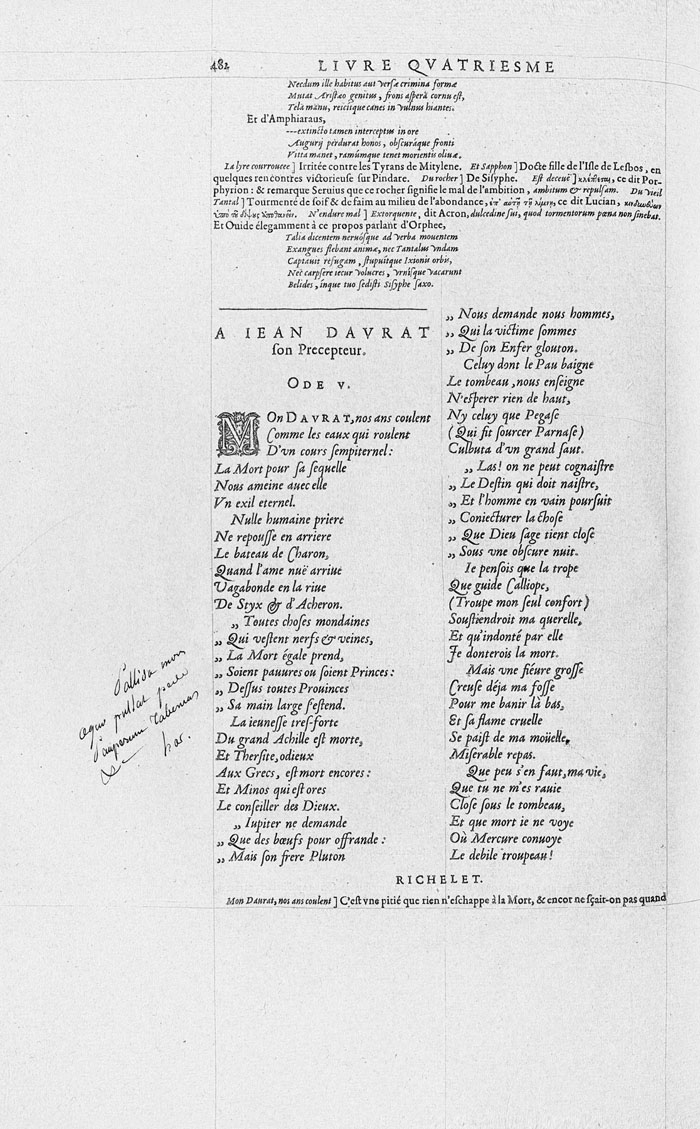 482 LIVRE QVATRIESME
Necdum ille habitus aut versæ crimina formæ
Mutat Aristæo genitus, frons asperà cornu est,
Tela manu, reiicitque canes in vulnus hiantes.
Et d'Amphiaraus,
---extincto tamen interceptus in ore
Augurij perdurat honos, obscuráque fronti
Vitta manet, ramúmque tenet morientis oliuæ.
La lyre courroucee ] Irritée contre les Tyrans de Mitylene. Et Sapphon ] Docte fille de l'Isle de Lesbos, en
quelques rencontres victorieuse sur Pindare. Du rocher ] De Sisyphe. Est deceuë ] ce dit Por-
phyrion : & remarque Seruius que ce rocher signifie le mal de l'ambition, ambitum & repulsam. Du vieil
Tantal ] Tourmenté de soif & de faim au milieu de l'abondance, ce dit Lucian,
N'endure mal ] Extorquente, dit Acron, dulcedine sui, quod tormentorum pœna non sinebat.
Et Ouide élegamment à ce propos parlant d'Orphee,
Talia dicentem neruósque ad verba mouentem
Exangues flebant animæ, nec Tantalus vndam
Captauit refugam, stupuitque Ixionis orbis,
Nec carpsere iecur volucres, vrnisque vacarunt
Belides, inque tuo sedisti Sisyphe saxo.
A IEAN DAVRAT
son Precepteur.
ODE V.
MOn DAVRAT, nos ans coulent
Comme les eaux qui roulent
D'vn cours sempiternel :
La Mort pour sa sequelle
Nous ameine auec elle
Vn exil eternel.
Nulle humaine priere
Ne repousse en arriere
Le bateau de Charon,
Quand l'ame nuë arriue
Vagabonde en la riue
De Styx & d'Acheron.
„ Toutes choses mondaines
„ Qui vestent nerfs & veines,
„ La Mort égale prend,
„ Soient pauures ou soient Princes :
„ Dessus toutes Prouinces
„ Sa main large s'estend.
La ieunesse tres-forte
Du grand Achille est morte,
Et Thersite, odieux
Aux Grecs, est mort encores :
Et Minos qui est ores
Le conseiller des Dieux.
„ Iupiter ne demande
„ Que des bœufs pour offrande :
„ Mais son frere Pluton
„ Nous demande nous hommes,
„ Qui la victime sommes
„ De son Enfer glouton.
Celuy dont le Pau baigne
Le tombeau, nous enseigne
N'esperer rien de haut,
Ny celuy que Pegase
(Qui fit sourcer Parnase)
Culbuta d'vn grand saut.
„ Las! on ne peut cognaistre
„ Le Destin qui doit naistre,
„ Et l'homme en vain poursuit
„ Coniecturer la chose
„ Que Dieu sage tient close
„ Sous vne obscure nuit.
Ie pensois que la trope
Que guide Calliope,
(Troupe mon seul confort)
Soustiendroit ma querelle,
Et qu'indonté par elle
Ie donterois la mort.
Mais vne fiéure grosse
Creuse déja ma fosse
Pour me banir là bas,
Et sa flame cruelle
Se paist de ma moüelle,
Miserable repas.
Que peu s'en faut, ma vie,
Que tu ne m'es rauie
Close sous le tombeau,
Et que mort ie ne voye
Où Mercure conuoye
Le debile troupeau!
Pallida mors
æquo pulsat pede
Pauperum tabernas
&c hor.
RICHELET.
Mon Daurat, nos ans coulent ] C'est vne pitié que rien n'eschappe à la Mort, & encor ne sçait-on pas quand